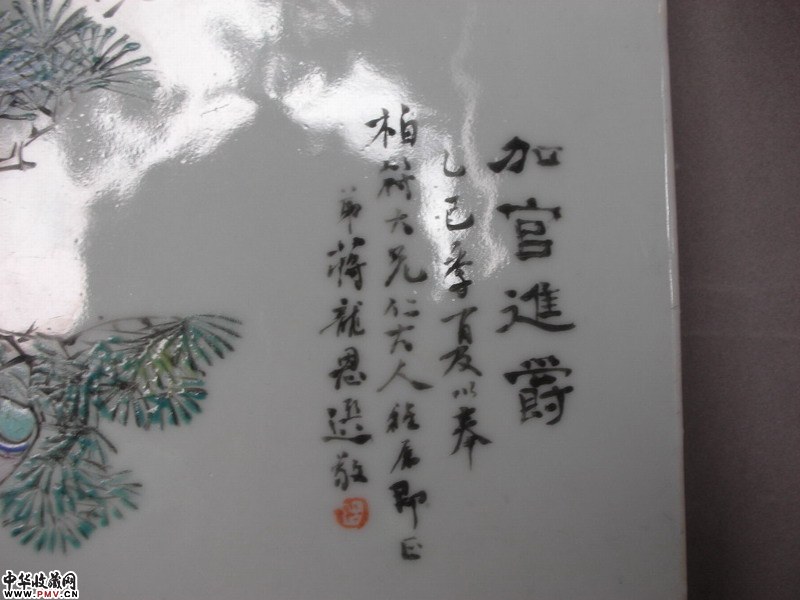 加官進爵
乙巳季夏以奉
柏符大兄仁大人 即正
弟蔣龍恩選敬
中华收藏网
www.PMV.cn